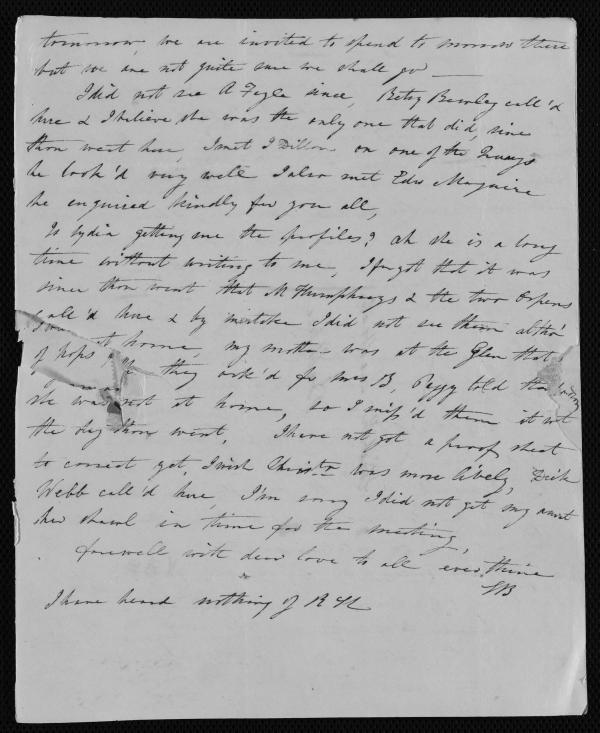 tomorrow, we are invited to spend to morrow there
but we are not quite sure we shall go —
I did not see A Fayle since, Betsy Bewley call'd
here & I believe she was the only one that did, since
thou went here, I met J Dillon on one of the Quays
he look'd very well I also met Edw Maguire
he enquired kindly for you all,
Is Lydia getting me the profiles? ah she is a long
time without writing to me, I forgot that it was
since thou went that M Humphreys & the two Orpens
call'd here & by mistake I did not see them altho'
I was at home, my mother was at the Glen that
of they ask'd for Mrs B, Peggy told them
she was not at home, so I miss'd them it was
the day thou went, I have not got a proof sheet
to correct yet, I wish Christr was more lively, Dick
Webb call'd here I'm sorry I did not get my aunt
her shawl in time for the meeting,
farewell with dear love to all ever thine
I have heard nothing of R